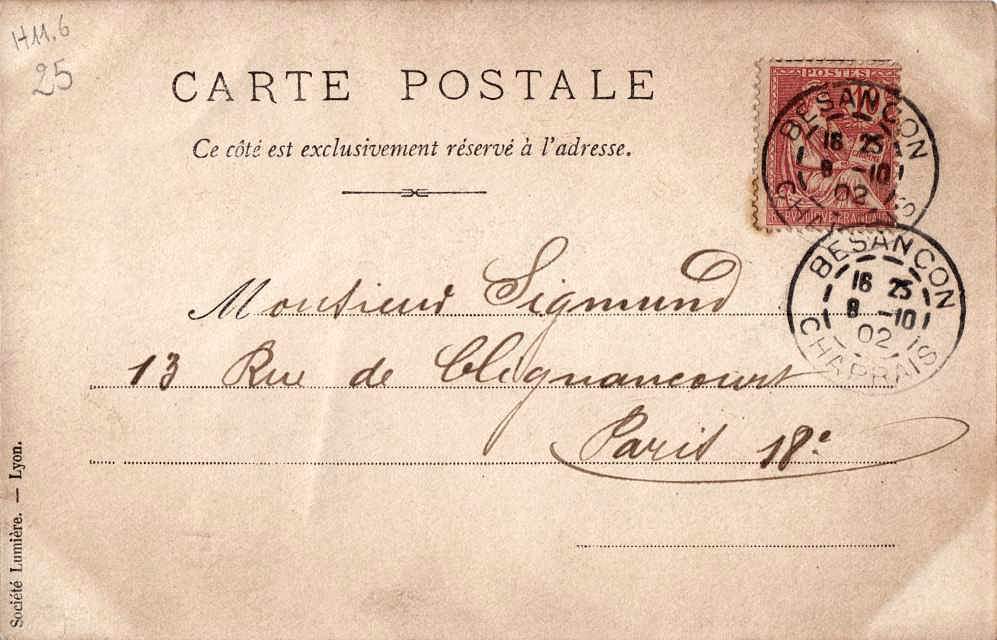 H11.6
25
CARTE POSTALE
Ce côté est exclusivement réservé à l'adresse.
POSTES
10
BESANÇON
16 25
8 -10
02
BESANÇON
16 25
8 -10
02
CHAPRAIS
Monsieur Sigmund
13 Rue de Clignancourt
Paris 18e
Société Lumière. — Lyon.